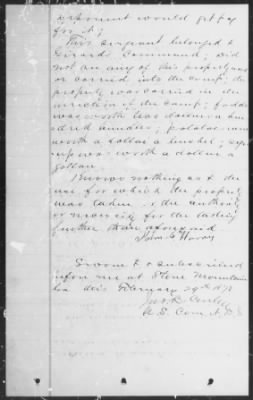 claimant would get pay
for it;
This sergeant belonged to
Girards Command; did
not see any of this property used
or carried into the camp; the
property was carried in the
direction of the camp; fodder
was worth two dollars a hun-
dred bundles; potatoes were
worth a dollar a bushel; syr-
up was worth a dollar a
gallon.
I know nothing as to the
use for which the property
was taken, or the authority
or necessity for the taking
further than aforesaid
John
Sworn to & subscribed
before me at Stone Mountain
Ga this February 29th